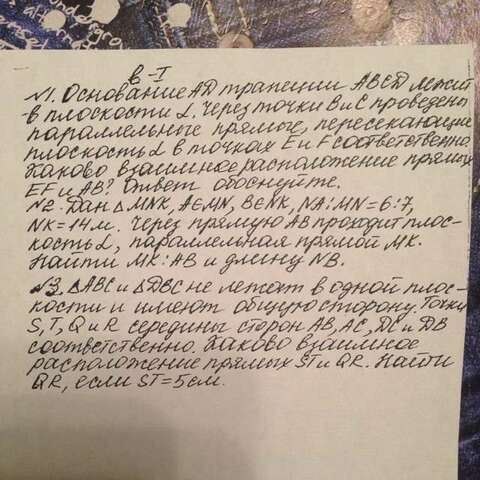 в-I
№1. Основание AD трапеции ABCD лежит
в плоскости α. Через точки B и C проведены
параллельные прямые, пересекающие
плоскость α в точках E и F соответственно.
Каково взаимное расположение прямых
EF и AB? Ответ обоснуйте.
№2. Дан △MNK, A∈MN, B∈NK, NA:MN=6:7,
NK=14м. Через прямую AB проходит плос-
кость α, параллельная прямой MK.
Найти MK:AB и длину NB.
№3. △ABC и △DBC не лежат в одной плос-
кости и имеют общую сторону. Точки
S, T, Q и R середины сторон AB, AC, DC и DB
соответственно. Каково взаимное
расположение прямых ST и QR. Найти
QR, если ST=5см.